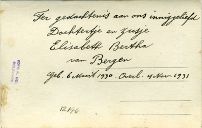 Ter gedachtenis aan ons innig geliefd
Dochtertje en zusje
Elisabeth Bertha
van Bergen
Geb. 6 Maart 1930 Overl. 4 Nov. 1931